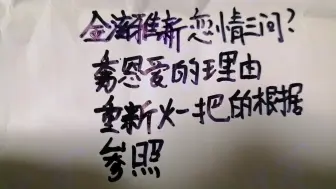 金海雅新恋情三问?
秀恩爱的理由
重新火一把的根据
参照